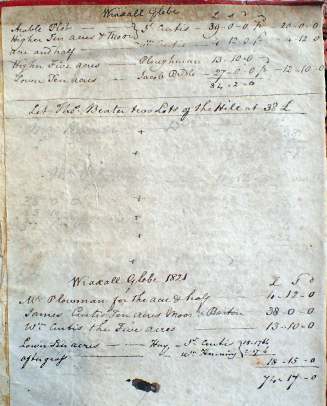 Wraxall Glebe
£ s d
Arable Plot
Higher Ten acres & Moor } Js. Curtis 39-0-0 20-0-0
4-12-0 4-12-0
One and half
Higher Five acres Ploughman 13-10-0
Lower Ten acres - Jacob 27-0-0 12-10-0
84-2-0
Let Thos. two Lots of the Hile at 38 £
Wraxall Glebe 1821
£ S D
Mr Plowman for the acre & half 4-12-0
James Curtis Ten acres Moor & Barton 38-0-0
Wm Curtis the Five acres 13-10-0
Lower Ten acres - Hay, - Js. Curtis
aftergrass - Wm 18-15-0
74-17-0